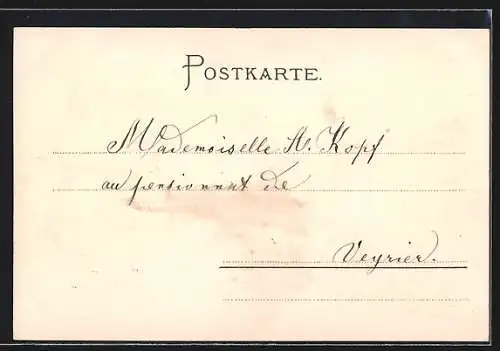 POSTKARTE.
Mademoiselle A. Kopf
au pensionnat de
Veyrier.